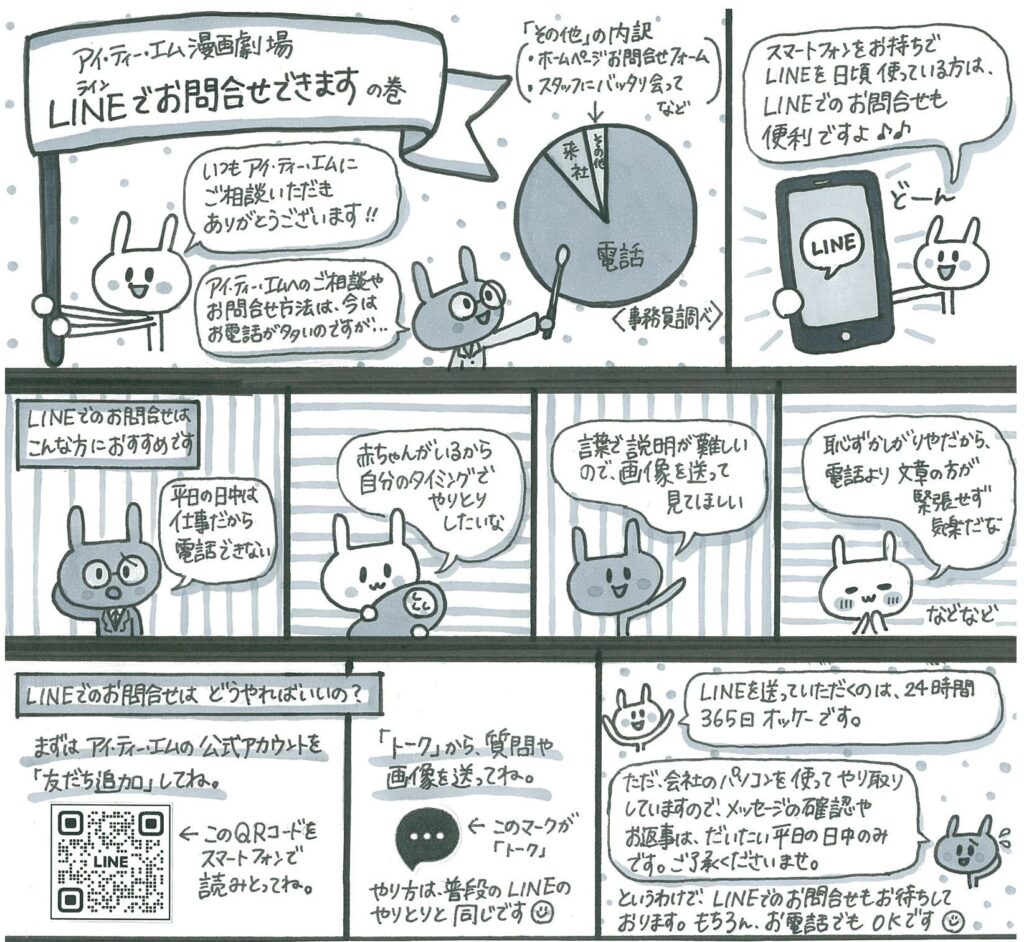 アイ・ティー・エム漫画劇場
ライン
LINEでお問合せできます の巻
いつもアイ・ティー・エムに
ご相談いただき
ありがとうございます!!
アイ・ティー・エムへのご相談や
お問合せ方法は、今は
お電話が多いのですが…
「その他」の内訳
・ホームページお問合せフォーム
・スタッフにバッタリ会って
など
その他
来社
電話
〈事務員調べ〉
スマートフォンをお持ちで
LINEを日頃使っている方は、
LINEでのお問合せも
便利ですよ♪♪
どーん
LINE
LINEでのお問合せは
こんな方におすすめです
平日の日中は
仕事だから
電話できない
赤ちゃんがいるから
自分のタイミングで
やりとり
したいな
言葉で説明が難しい
ので、画像を送って
見てほしい
恥ずかしがりやだから、
電話より文章の方が
緊張せず
気楽だな
などなど
LINEでのお問合せは どうやればいいの?
まずは アイ・ティー・エムの公式アカウントを
「友だち追加」してね。
LINE
←このQRコードを
スマートフォンで
読みとってね。
「トーク」から、質問や
画像を送ってね。
←このマークが
「トーク」
やり方は、普段のLINEの
やりとりと同じです☺
LINEを送っていただくのは、24時間
365日オッケーです。
ただ、会社のパソコンを使ってやり取り
していますので、メッセージの確認や
お返事は、だいたい平日の日中のみ
です。ご了承くださいませ。
というわけで、LINEでのお問合せもお待ちして
おります。もちろん、お電話でもOKです☺